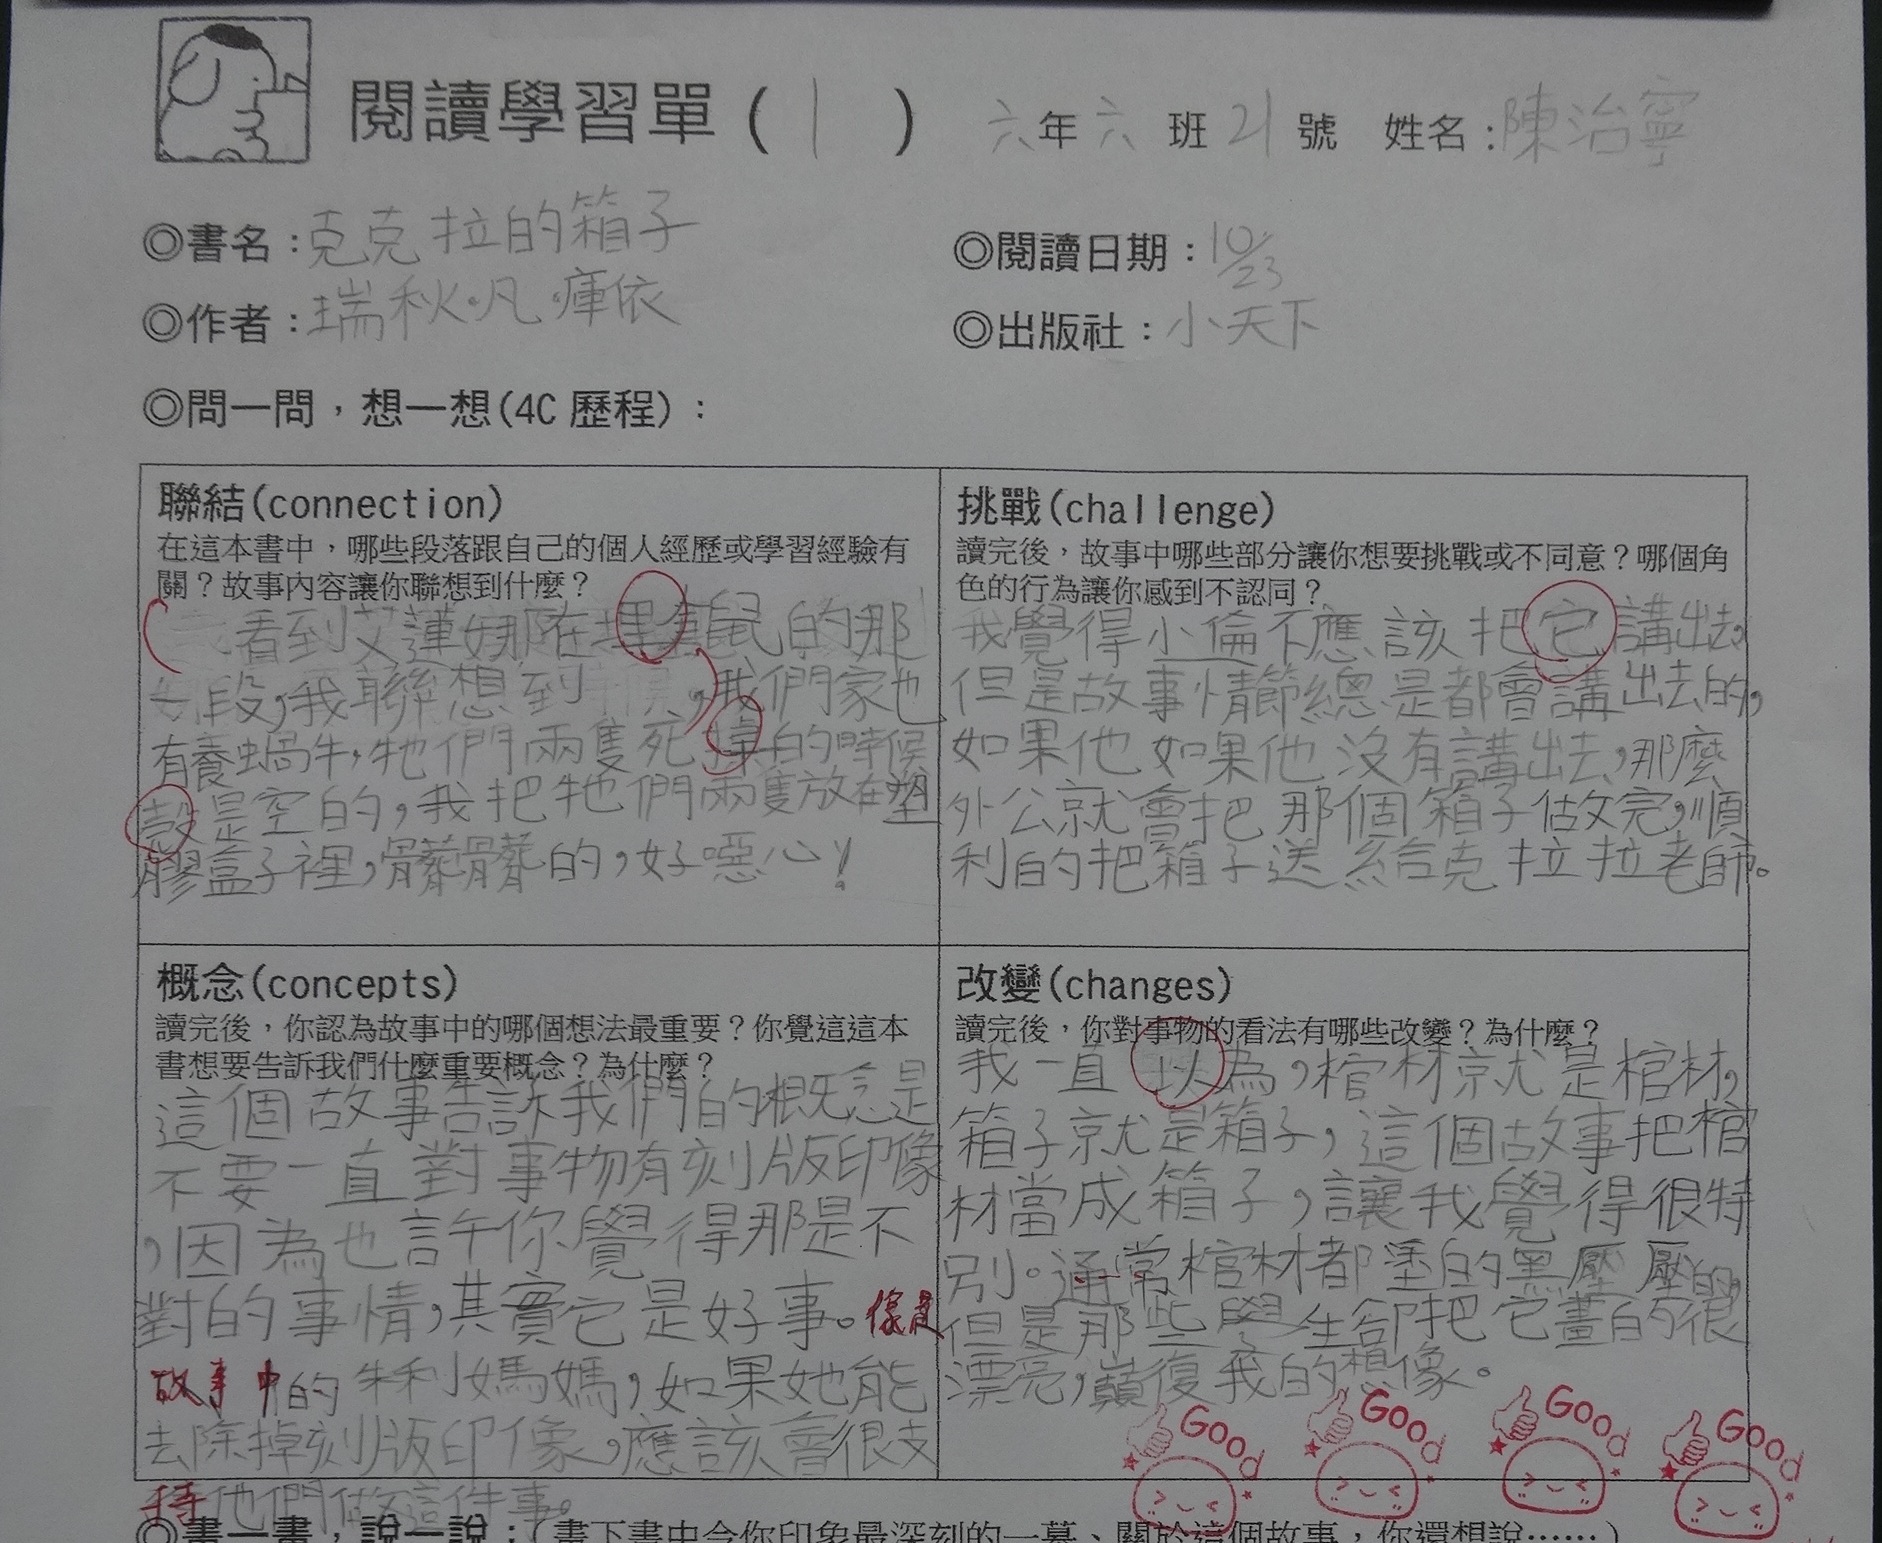 閱讀學習單(1) 六年六班21號 姓名:陳治寧
◎書名:克克拉的箱子
◎閱讀日期:10/23
◎作者:瑞秋.凡.庫依
◎出版社:小天下
◎問一問,想一想(4C 歷程):
聯結(connection)
在這本書中,哪些段落跟自己的個人經歷或學習經驗有
關?故事內容讓你聯想到什麼?
看到艾蓮娜在埋鼠的那
段,我聯想到,我們家也
有養蝸牛,牠們兩隻死掉的時候
殼是空的,我把牠們兩隻放在塑
膠盒子裡,髒髒的,好噁心!
挑戰(challenge)
讀完後,故事中哪些部分讓你想要挑戰或不同意?哪個角
色的行為讓你感到不認同?
我覺得小倫不應該把它講出去,
但是故事情節總是都會講出去的,
如果他如果他沒有講出去,那麼
外公就會把那個箱子做完,順
利的把箱子送給克拉拉老師。
概念(concepts)
讀完後,你認為故事中的哪個想法最重要?你覺這這本
書想要告訴我們什麼重要概念?為什麼?
這個故事告訴我們的概念是
不要一直對事物有刻版印像
,因為也許你覺得那是不
對的事情,其實它是好事。像是
故事中的朱利媽媽,如果她能
去除掉刻版印像,應該會很支
持他們做這件事。
改變(changes)
讀完後,你對事物的看法有哪些改變?為什麼?
我一直以為,棺材就是棺材,
箱子就是箱子,這個故事把棺
材當成箱子,讓我覺得很特
別。通常棺材都塗的黑壓壓的,
但是那些學生卻把它畫的很
漂亮,巔復我的想像。
Good Good Good Good
◎畫一畫,說一說:(畫下書中令你印象最深刻的一幕、關於這個故事,你還想說……)